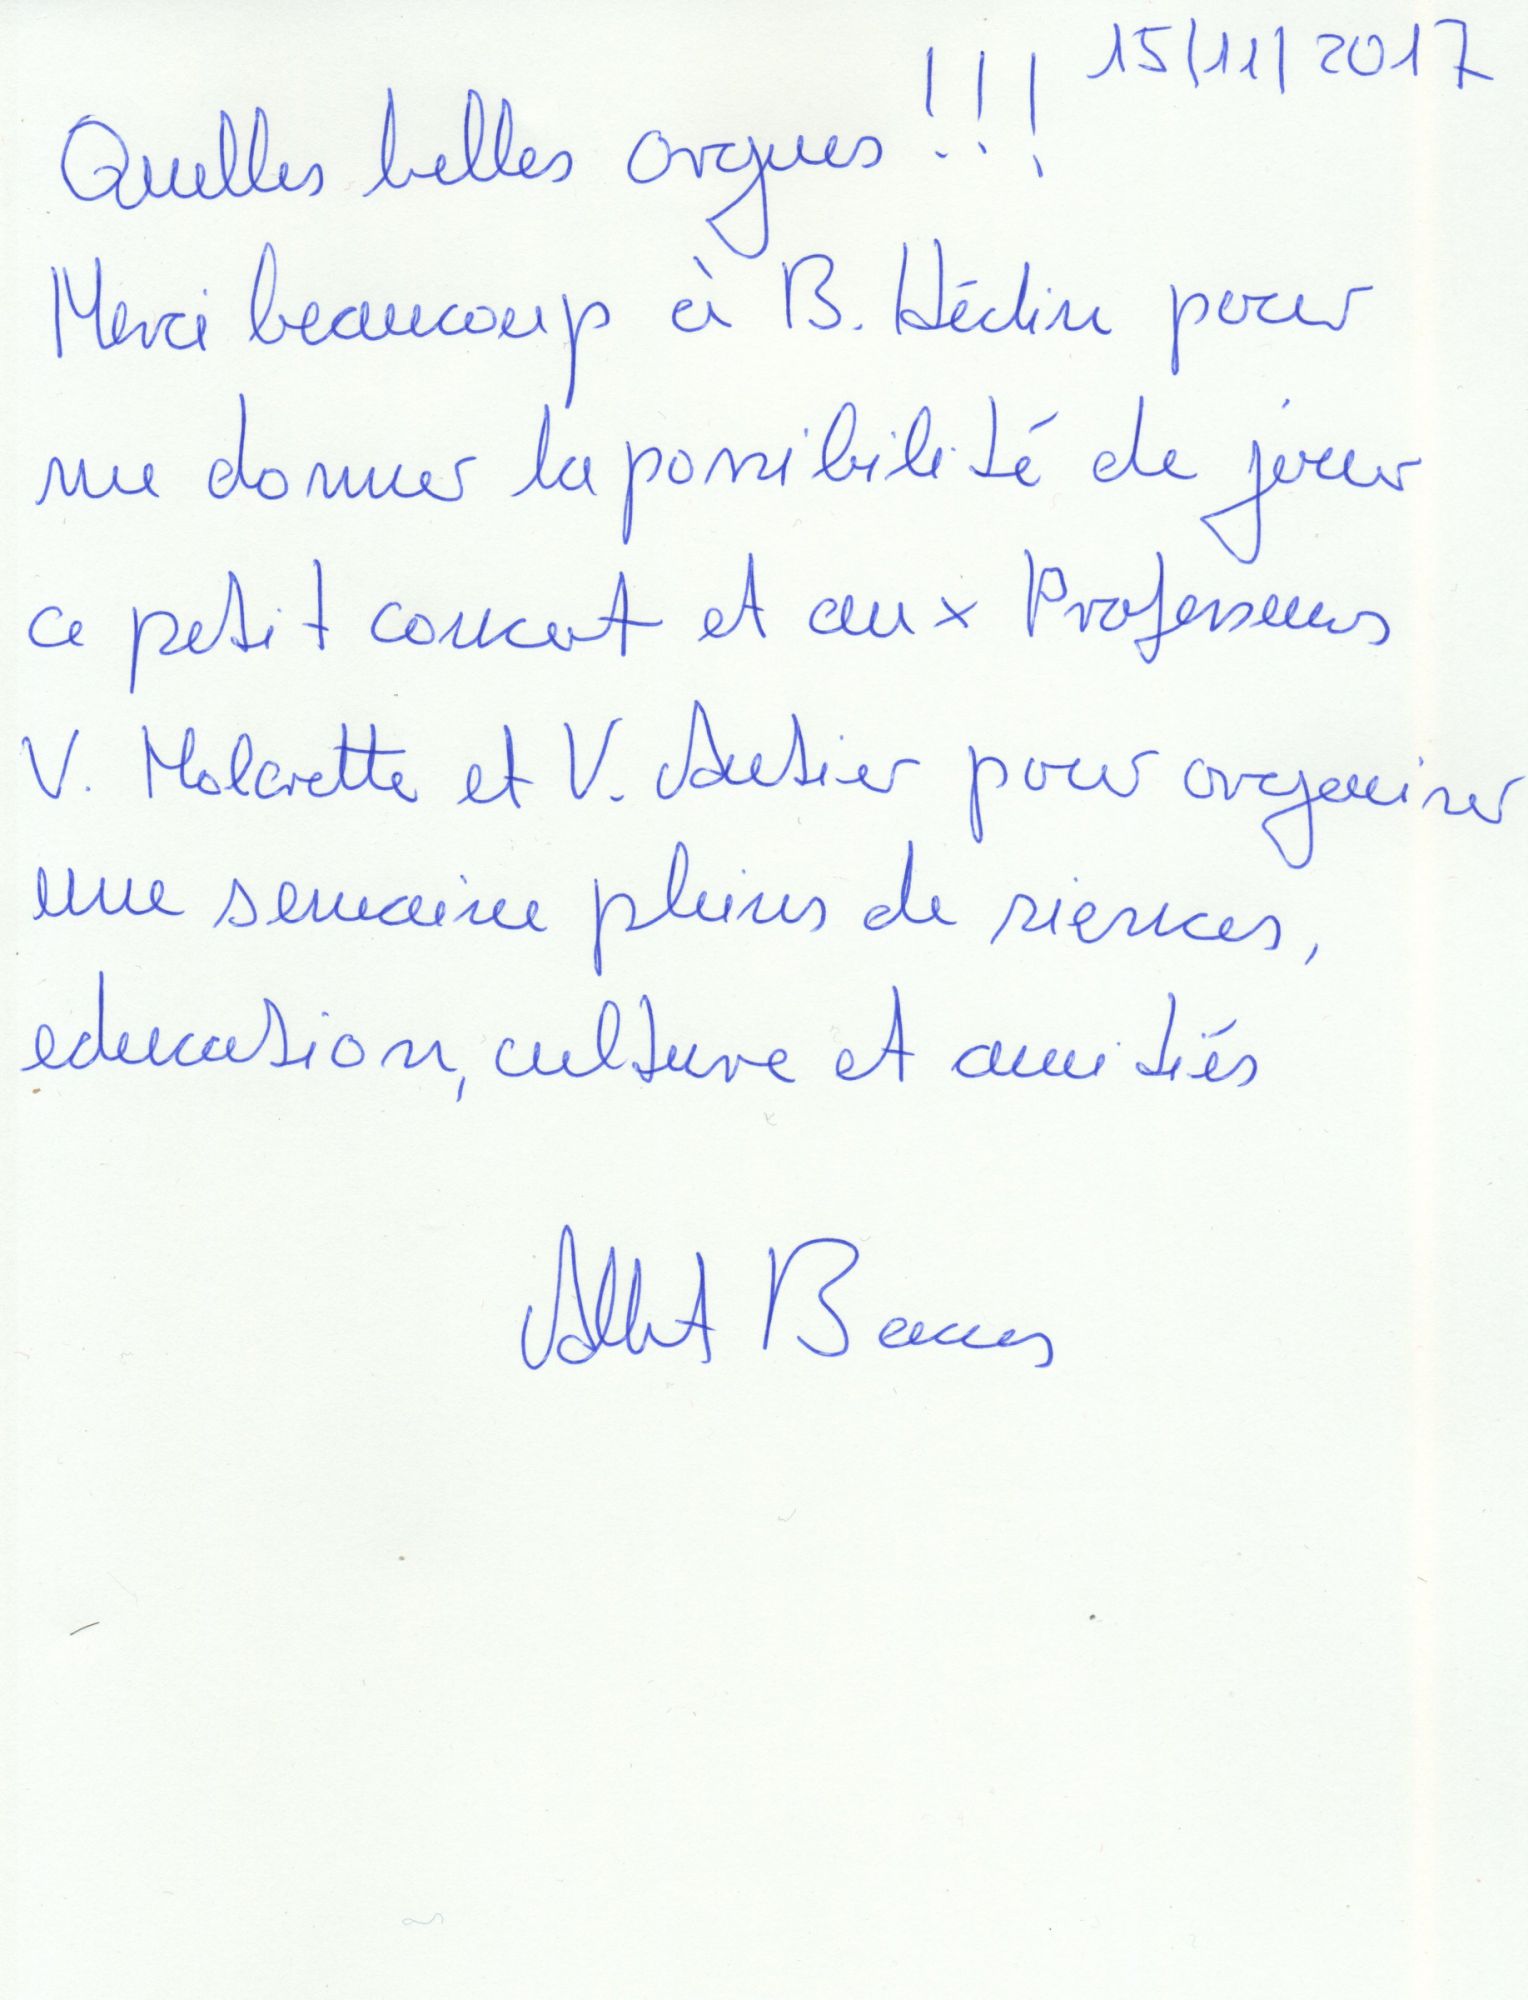 15/11/2017
Quelles belles orgues !!!
Merci beaucoup à B. Hédin pour
me donner la possibilité de jouer
ce petit concert et aux Professeurs
V. Molcrette et V. Autier pour organiser
une semaine pleins de siences,
education, culture et amitiés
Albert